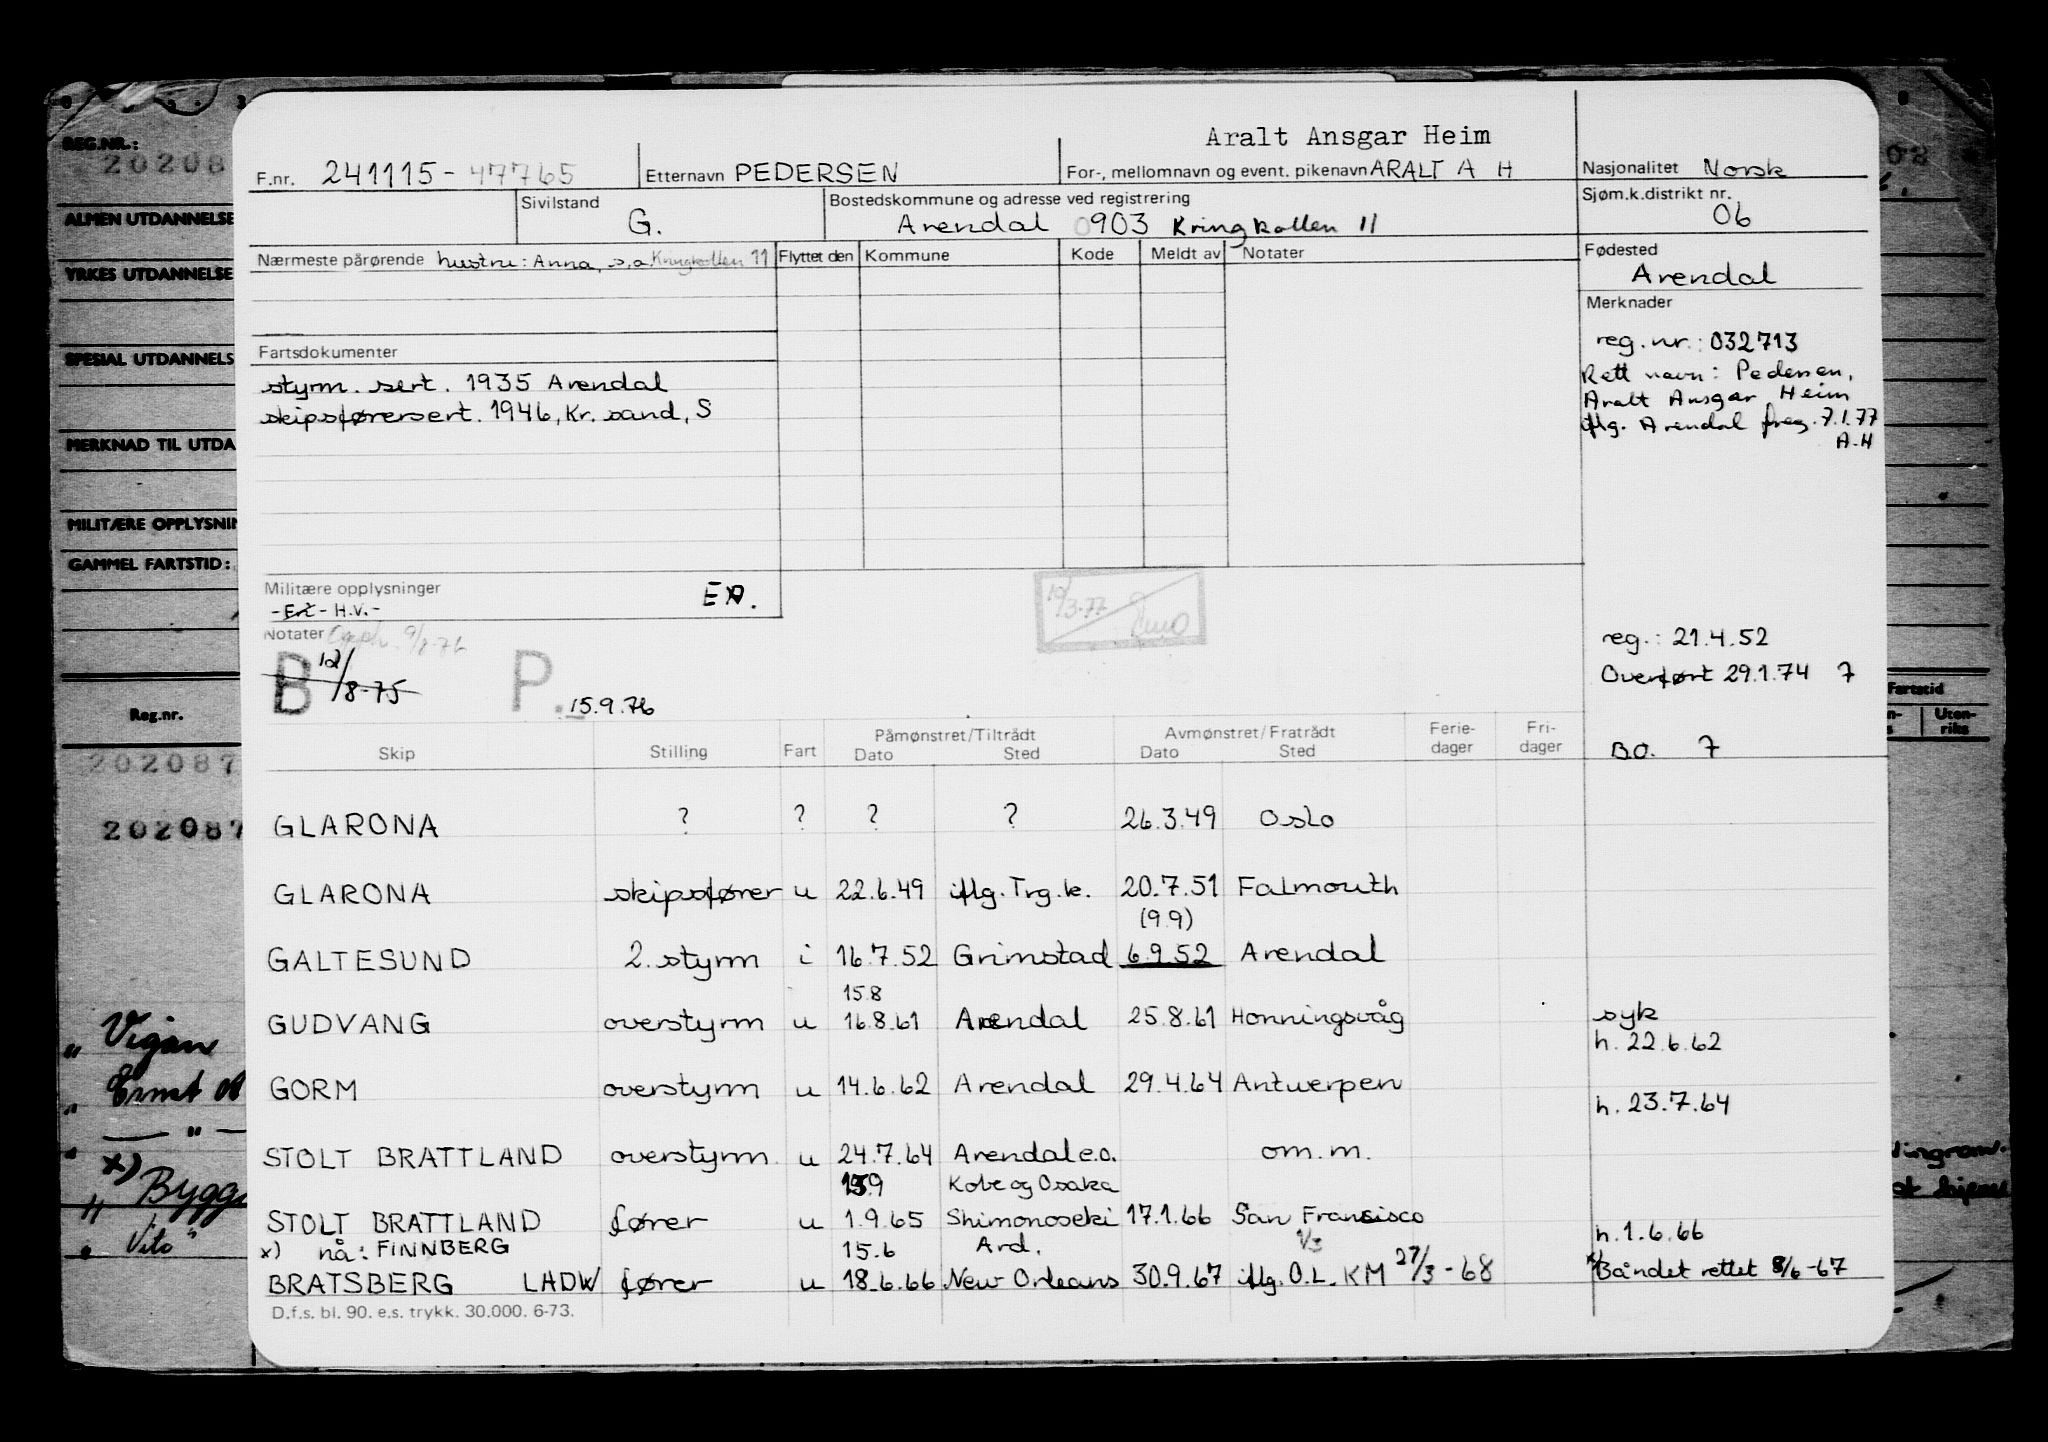 Aralt Ansgar Heim
F.nr. 241115-47765 Etternavn PEDERSEN For-, mellomnavn og event. pikenavn ARALT A H Nasjonalitet Norsk
Sivilstand G. Bostedskommune og adresse ved registrering Arendal 0903 Kringkollen 11 Sjøm.k.distrikt nr. 06
Nærmeste pårørende hustru: Anna, s.a. Kringkollen 11 Flyttet den Kommune Kode Meldt av Notater Fødested
Arendal
Merknader
reg.nr.: 032713
Rett navn: Pedersen,
Aralt Ansgar Heim
iflg. Arendal freg. 7.1.77
A.H
Fartsdokumenter
styrm. sert. 1935 Arendal
skipsførersert. 1946, Kr. sand, S
Militære opplysninger
- H.V.-
Notater 9/8-76
B 12/8-75 P. 15.9.76
10/3-77
reg.: 21.4.52
Overført 29.1.74 7
B.O. 7
Skip Stilling Fart Påmønstret/Tiltrådt Dato Sted Avmønstret/Fratrådt Dato Sted Ferie-dager Fri-dager
GLARONA ? ? ? ? 26.3.49 Oslo
GLARONA skipsfører u 22.6.49 iflg. Trg.k. 20.7.51 Falmouth
(9.9)
GALTESUND 2. styrm i 16.7.52 Grimstad 6.9.52 Arendal
15.8
GUDVANG overstyrm u 16.8.61 Arendal 25.8.61 Honningsvåg syk
h. 22.6.62
GORM overstyrm u 14.6.62 Arendal 29.4.64 Antwerpen
h. 23.7.64
STOLT BRATTLAND overstyrm. u 24.7.64 Arendal e.o. om.m.
Kobe og Osaka
STOLT BRATTLAND fører u 1.9.65 Shimonoseki 17.1.66 San Francisco
h. 1.6.66
x) nå: FINNBERG 15.6 Ard. 1/3
BRATSBERG LADW fører u 18.6.66 New Orleans 30.9.67 iflg. O.L. KM 27/3-68 x) Båndet rettet 8/6-67
D.f.s. bl. 90. e.s. trykk. 30.000. 6-73.
REG.NR.:
20208
ALMEN UTDANNELSE
YRKES UTDANNELSE
SPESIAL UTDANNELS
MERKNAD TIL UTDA
MILITÆRE OPPLYSNIN
GAMMEL FARTSTID:
Reg.nr.
202087
202087
" Vigan
" Ernst
— " —
x)
" Bygg
" Vito"
Fartstid
Uten-
riks